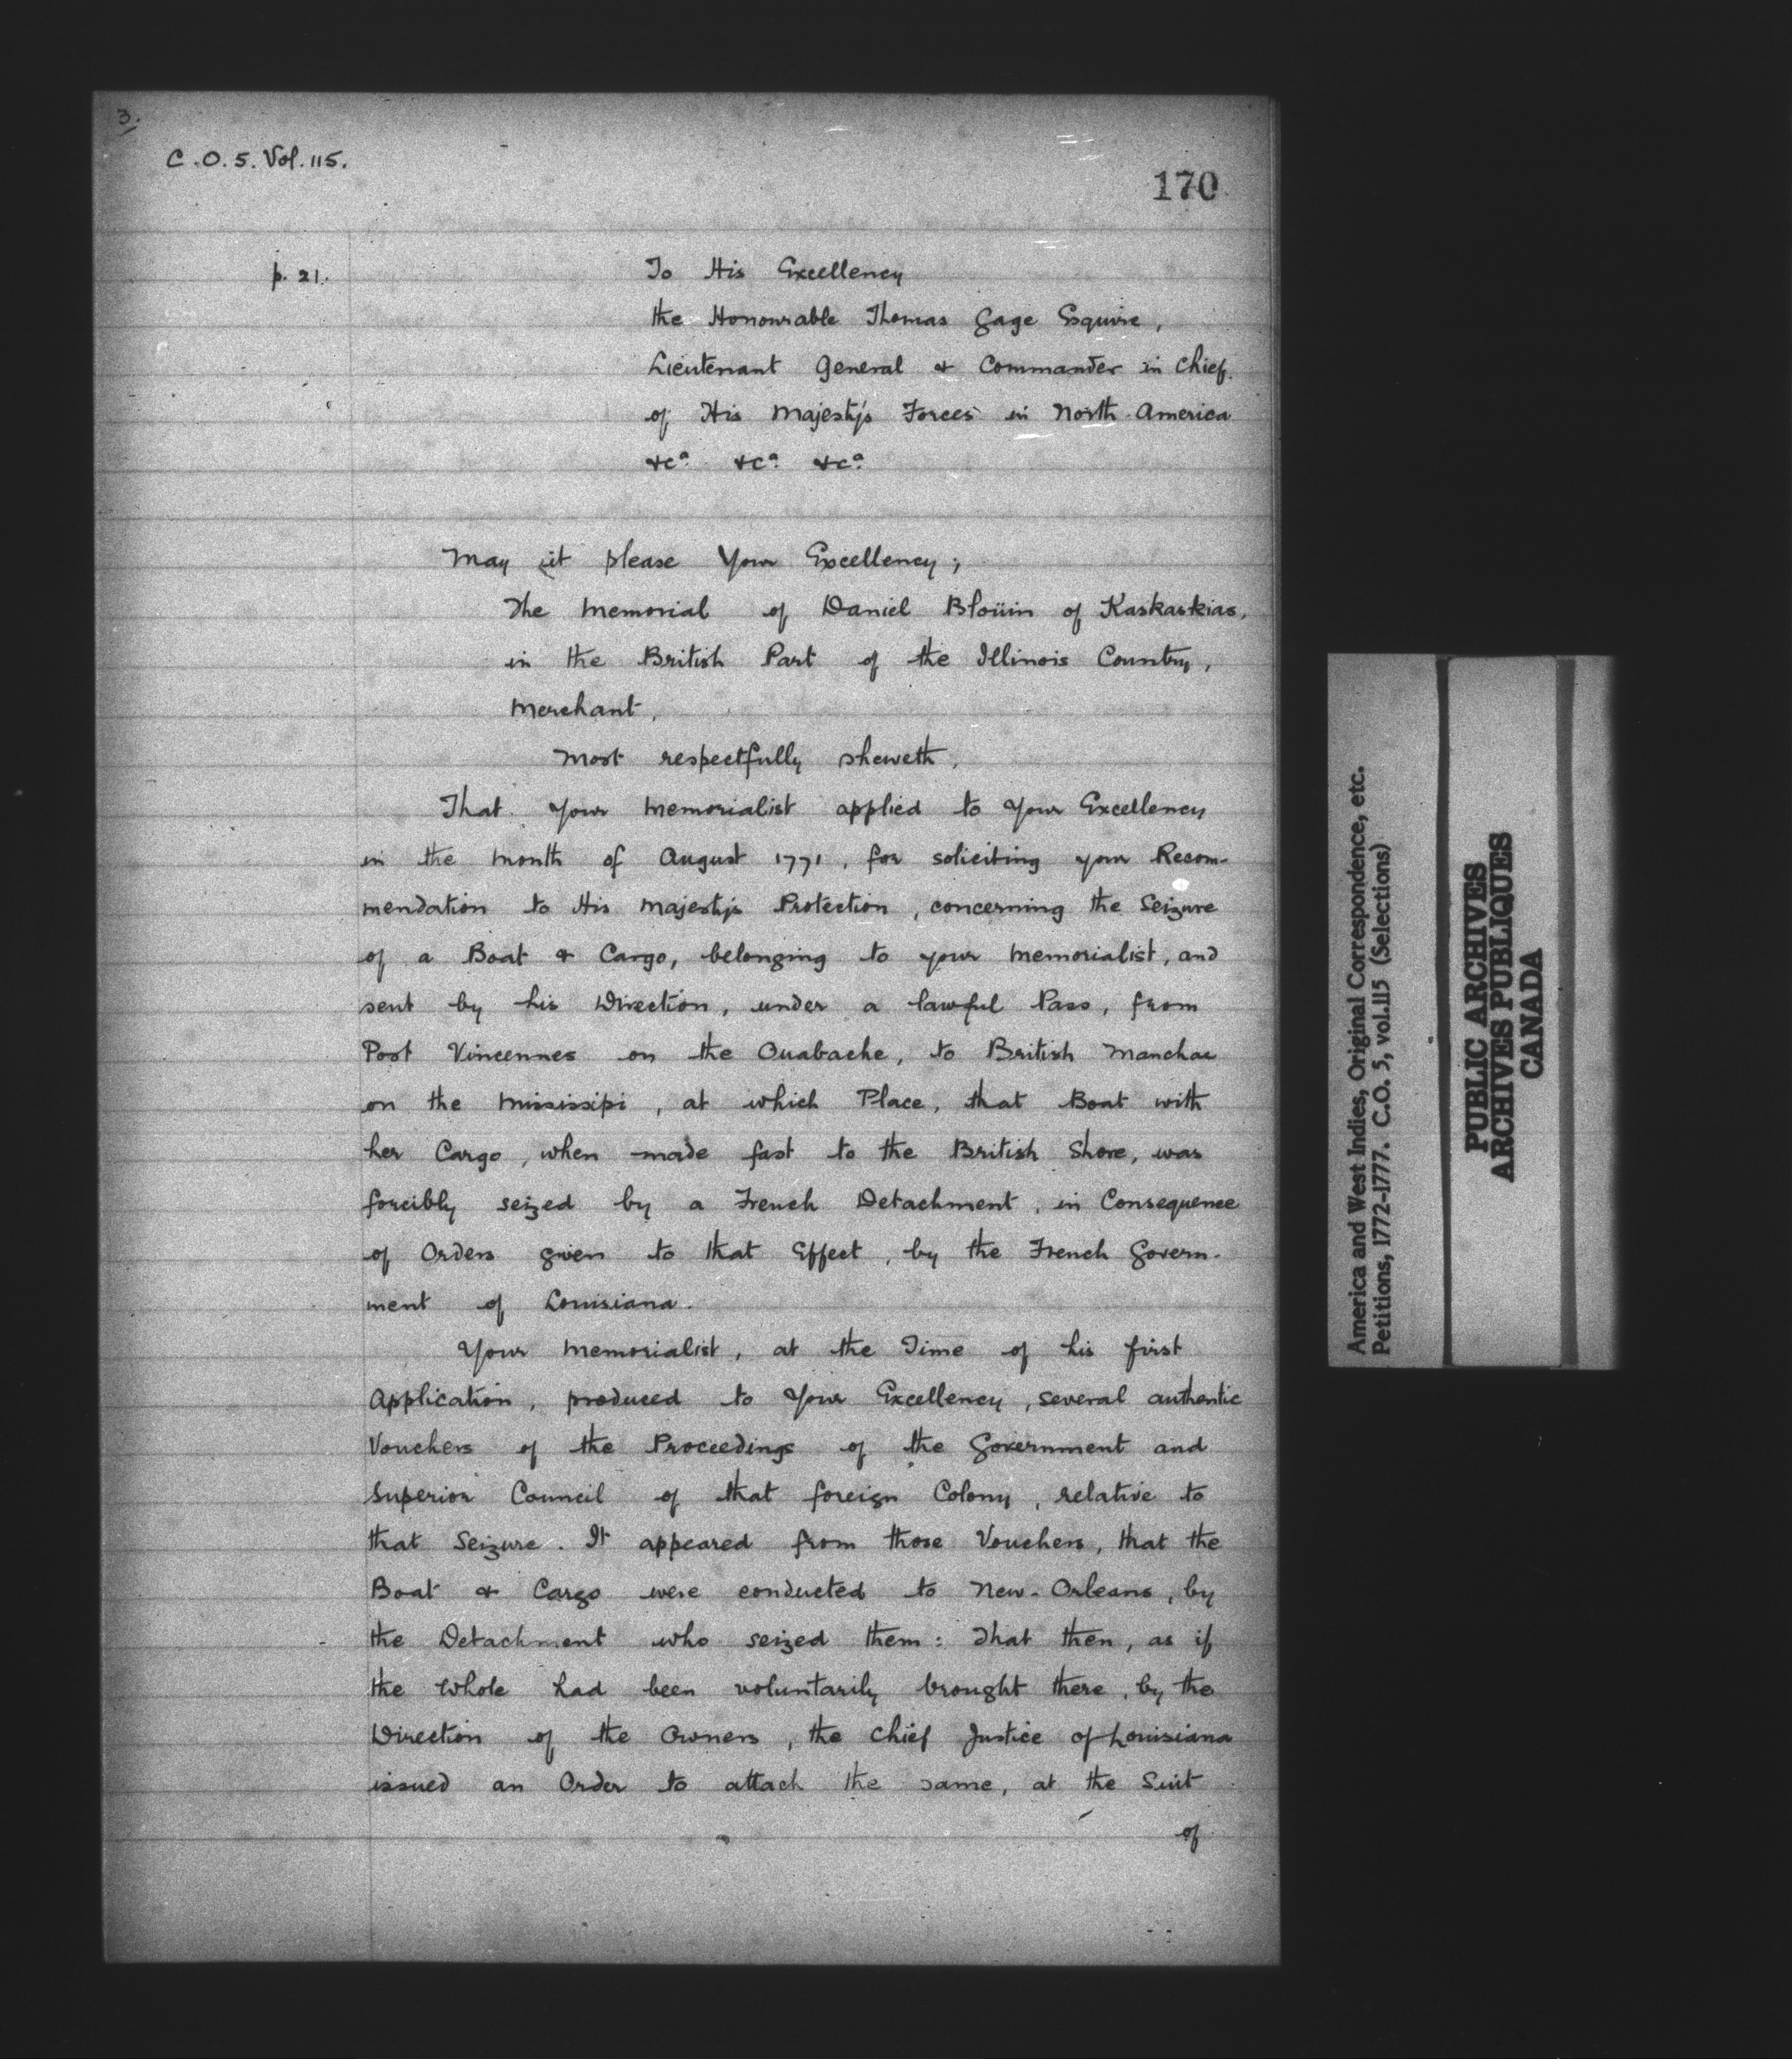 3.
C.O.5. Vol. 115.
170
p. 21.
To His Excellency
the Honourable Thomas Gage Esquire,
Lieutenant General & Commander in Chief.
of His Majesty's Forces in North-America
&cª &cª &cª
May it please Your Excellency;
The Memorial of Daniel Bloüin of Kaskaskias,
in the British Part of the Illinois Country,
Merchant,
Most respectfully sheweth,
That Your Memorialist applied to Your Excellency
in the Month of August 1771, for soliciting your Recom-
mendation to His Majesty's Protection, concerning the Seizure
of a Boat & Cargo, belonging to your Memorialist, and
sent by his Direction, under a lawful Pass, from
Post Vincennes on the Ouabache, to British Manchac
on the Mississipi, at which Place, that Boat with
her Cargo, when made fast to the British Shore, was
forcibly seized by a French Detachment, in Consequence
of Orders given to that Effect, by the French Govern-
ment of Louisiana.
Your Memorialist, at the Time of his first
Application, produced to Your Excellency, several authentic
Vouchers of the Proceedings of the Government and
Superior Council of that foreign Colony, relative to
that Seizure. It appeared from those Vouchers, that the
Boat & Cargo were conducted to New-Orleans, by
the Detachment who seized them: That then, as if
the Whole had been voluntarily brought there, by the
Direction of the Owners, the Chief Justice of Louisiana
issued an Order to attach the same, at the Suit
of
America and West Indies, Original Correspondence, etc.
Petitions, 1772-1777. C.O. 5, vol.115 (Selections)
PUBLIC ARCHIVES
ARCHIVES PUBLIQUES
CANADA